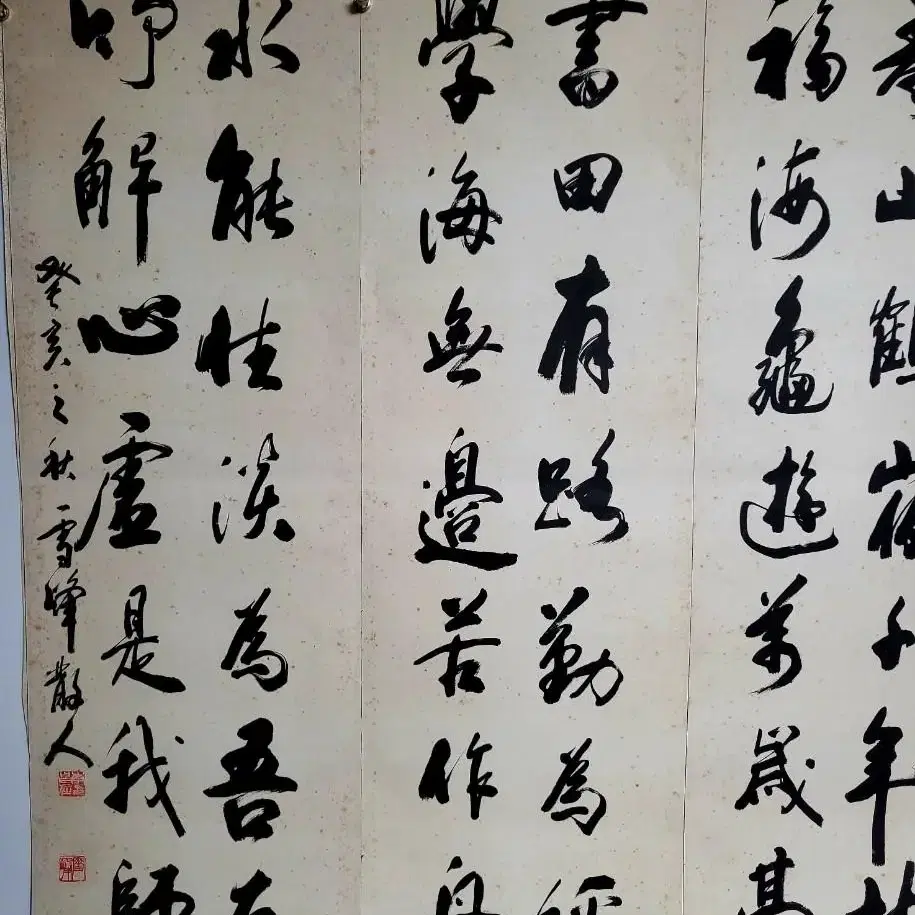 山鶴千年
福海龜遊萬歲
書田有路勤為徑
學海無邊苦作舟
水能性淡為吾友
竹解心虛是我師
癸亥之秋雪峰散人